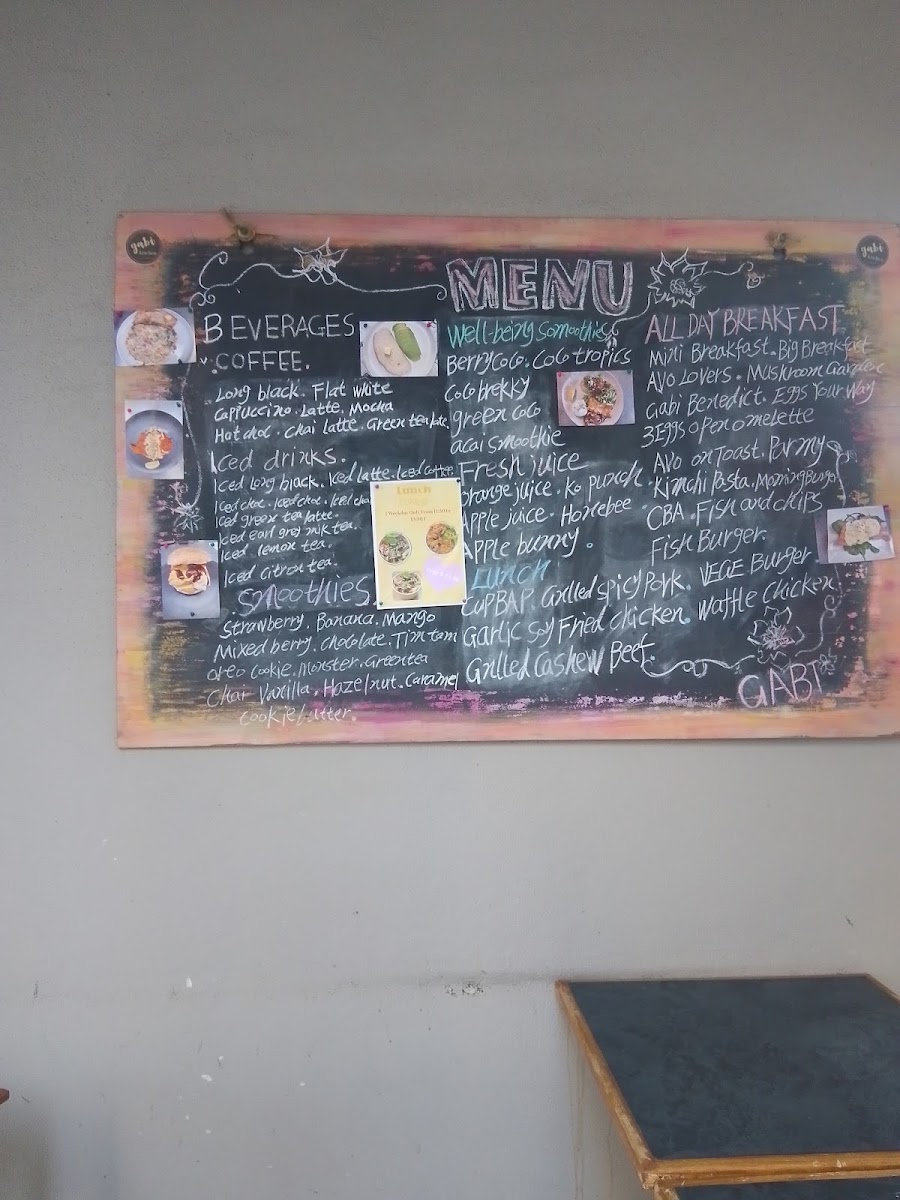 gabi
gabi
MENU
BEVERAGES
COFFEE.
Long black. Flat white
Cappuccino. Latte. Mocha
Hot choc. Chai latte. Green tea latte
Iced drinks.
Iced long black. Iced latte. Iced coffee
Iced choc. Iced choc. Iced chai
Iced green tea latte.
Iced earl grey milk tea.
Iced lemon tea.
Iced citron tea.
Smoothies
Strawberry. Banana. Mango
Mixed berry. Chocolate. Tim tam
oreo cookie. Monster. Greentea
Chai Vanilla. Hazelnut. Caramel
cookie butter.
Lunch
Well-being Somoothies
Berry Coco. Coco tropics
Coco brekky
green coco
acai smoothie
Fresh juice
orange juice. ko punch
Apple juice. Honebee
Apple bunny.
Lunch
CUPBAP. Grilled spicy Pork. VEGE Burger
Garlic Soy Fried chicken. Waffle Chicken
Grilled Cashew Beef.
ALL DAY BREAKFAST
Mini Breakfast. Big Breakfast
AVO LOVERS. MUSHROOM Garden
Gabi Benedict. Eggs Your Way
3Eggs open omelette
AVO on Toast. Parmy
Kimchi Pasta. Morning Burger
CBA. Fish and chips
Fish Burger.
GABI